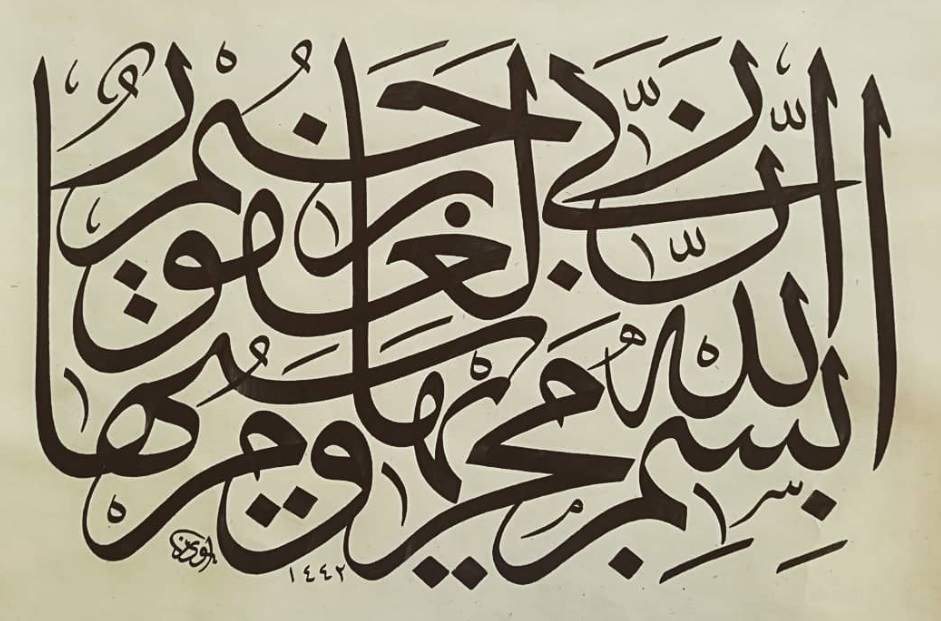 بسم الله مجريها ومرسيها
إن ربي لغفور رحيم
١٤٤٢